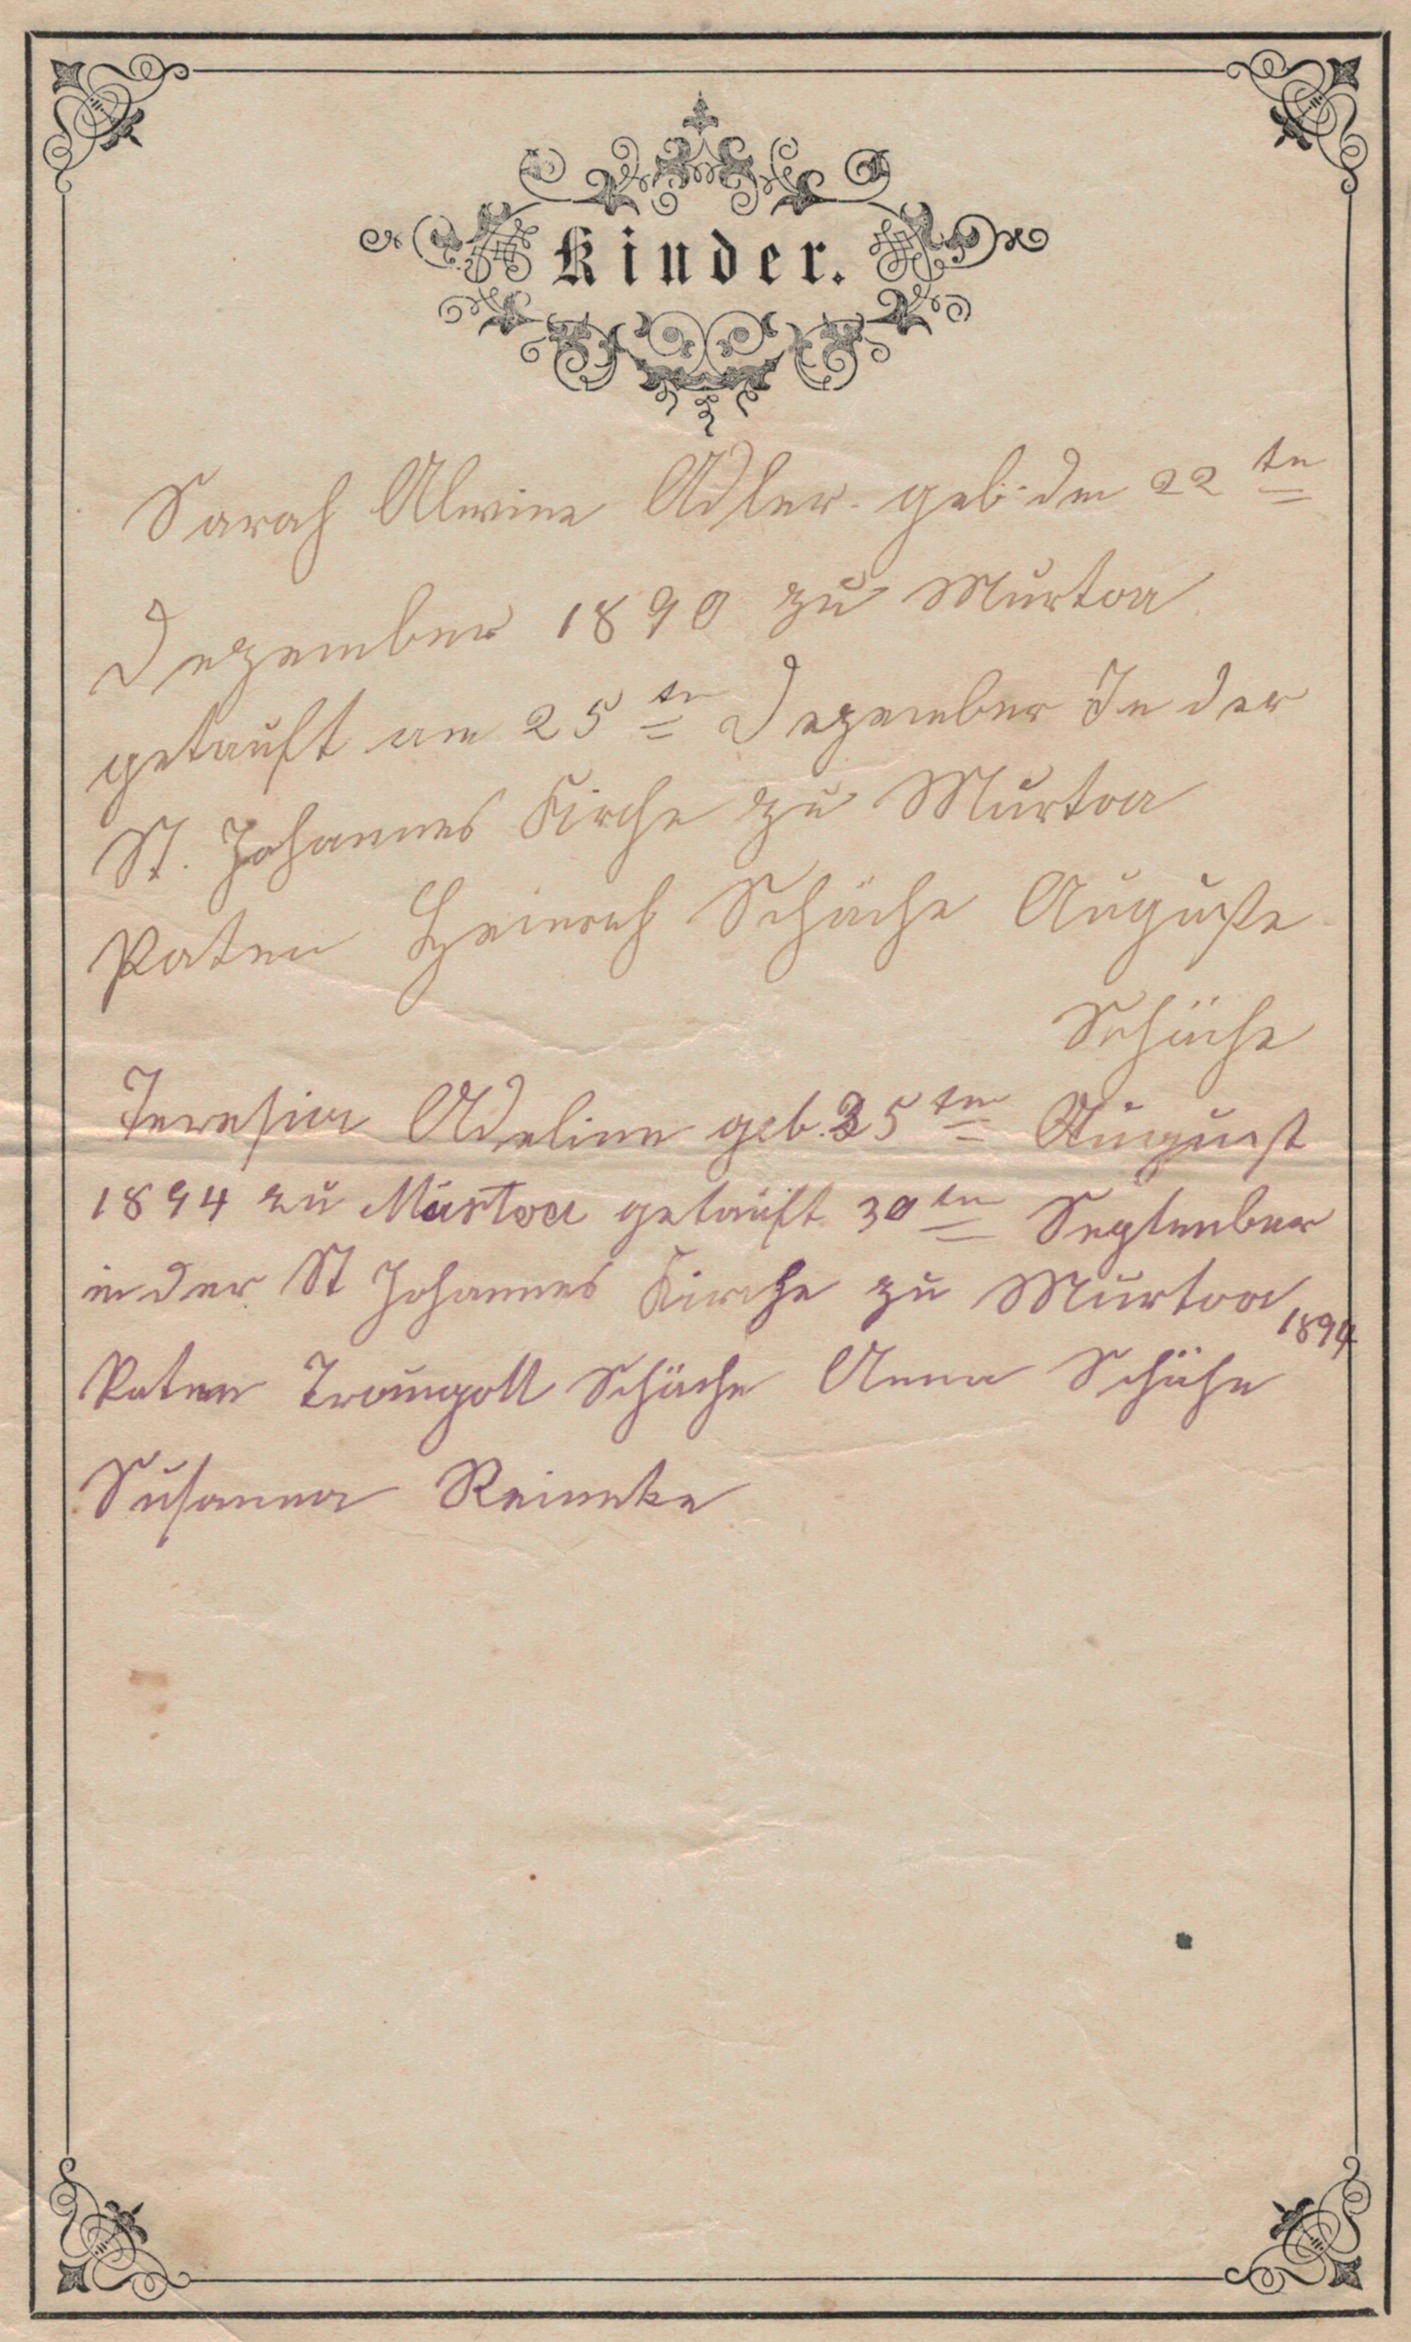 Kinder.
Sarah Alwine Adler. geb. den 22 tn
Dezember 1890 zu Murtoa
getauft am 25 tn Dezember In der
St. Johannes Kirche zu Murtoa
Paten Heinrich Schäche Auguste
Schäche
Teresia Adeline geb. 25 ten August
1894 zu Murtoa getauft 30 tn September
in der St Johannes Kirche zu Murtoa
1894
Paten Traugott Schäche Anna Schäche
Susanna Reineke